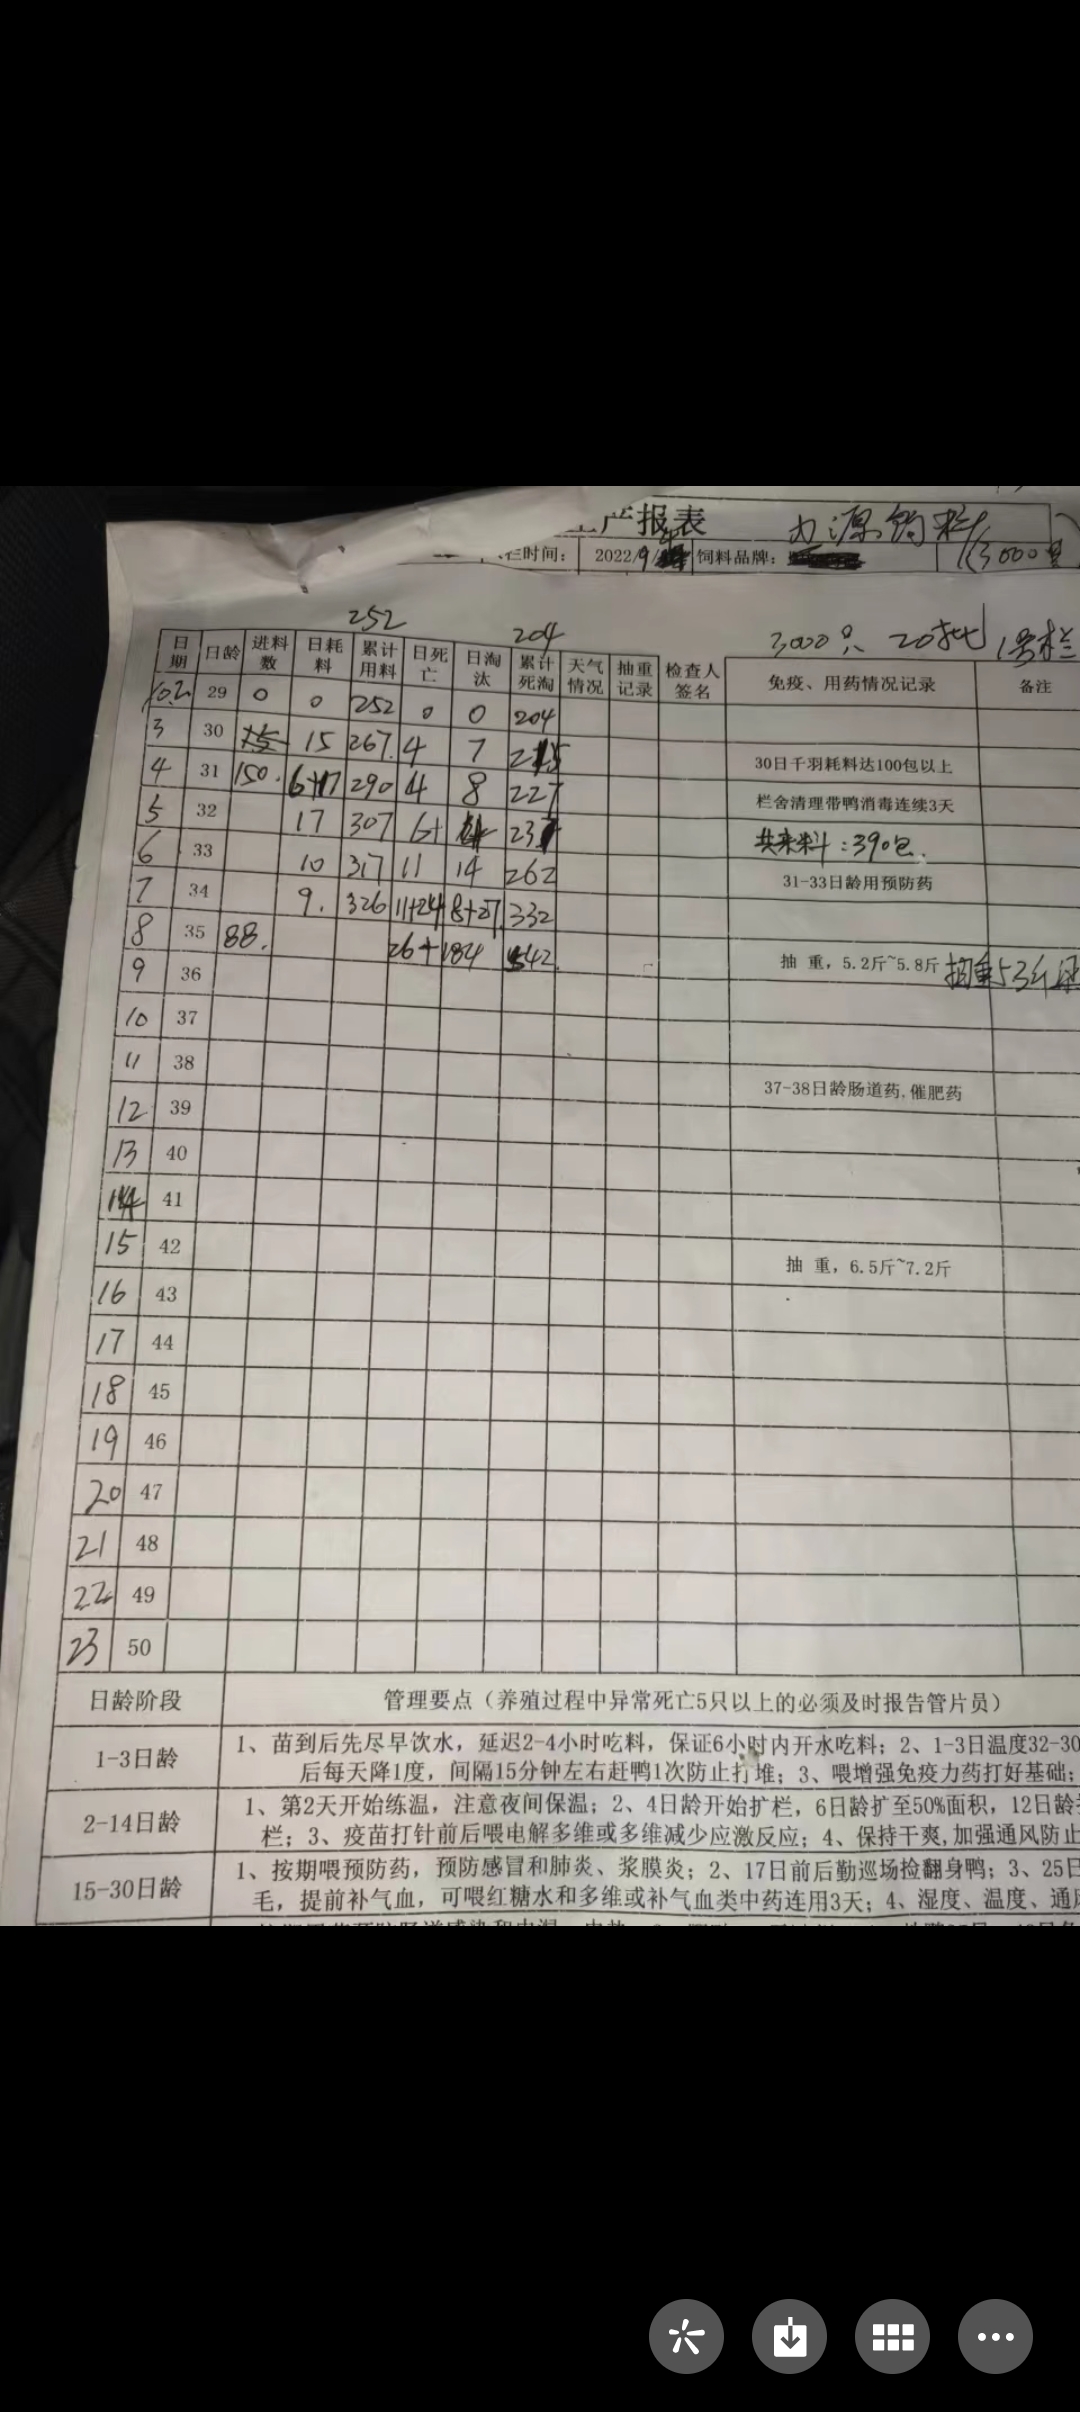 产报表
栏时间： 2022/9/ 饲料品牌： (3000
252 204 3000只 20批 1号栏
日期 日龄 进料数 日耗料 累计用料 日死亡 日淘汰 累计死淘 天气情况 抽重记录 检查人签名 免疫、用药情况记录 备注
10.2 29 0 0 252 0 0 204
3 30 15 15 267. 4 7 215 30日千羽耗料达100包以上
4 31 150. 6+17 290 4 8 227 栏舍清理带鸭消毒连续3天
5 32 17 307 6+ 4 237 共来料：390包.
6 33 10 317 11 14 262 31-33日龄用预防药
7 34 9. 326 11+24 8+27 332
8 35 88. 26+184 542. 抽 重，5.2斤~5.8斤 抽重5.3斤
9 36
10 37
11 38 37-38日龄肠道药,催肥药
12 39
13 40
14 41
15 42 抽 重，6.5斤~7.2斤
16 43
17 44
18 45
19 46
20 47
21 48
22 49
23 50
日龄阶段 管理要点（养殖过程中异常死亡5只以上的必须及时报告管片员）
1-3日龄 1、苗到后先尽早饮水，延迟2-4小时吃料，保证6小时内开水吃料；2、1-3日温度32-30
后每天降1度，间隔15分钟左右赶鸭1次防止打堆；3、喂增强免疫力药打好基础；
2-14日龄 1、第2天开始练温，注意夜间保温；2、4日龄开始扩栏，6日龄扩至50%面积，12日龄
栏；3、疫苗打针前后喂电解多维或多维减少应激反应；4、保持干爽,加强通风防止
15-30日龄 1、按期喂预防药，预防感冒和肺炎、浆膜炎；2、17日前后勤巡场捡翻身鸭；3、25日
毛，提前补气血，可喂红糖水和多维或补气血类中药连用3天；4、湿度、温度、通